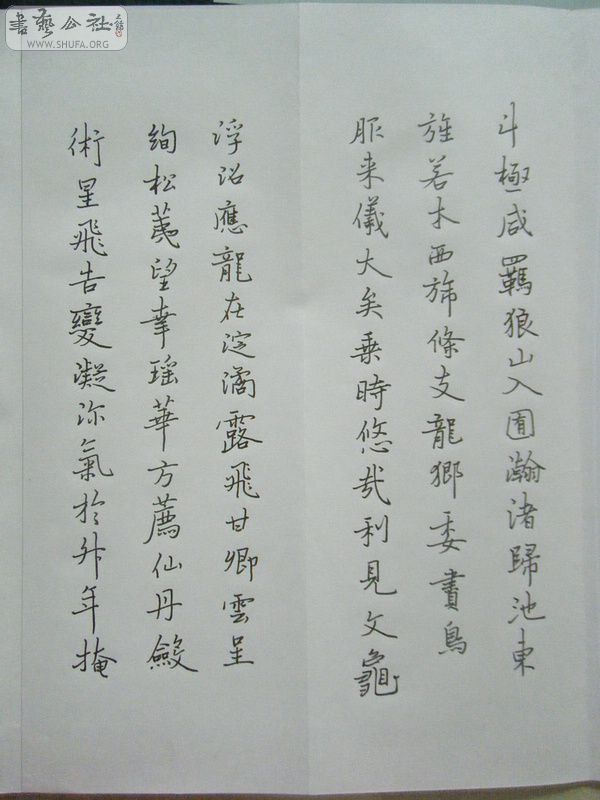 斗極咸羈狼山入囿瀚渚歸池東
旌若木西旆條支龍鄉委賮鳥
服来儀大矣乗時悠哉利見文龜
浮沼應龍在淀潏露飛甘卿雲呈
絢松蕤望幸瑶華方薦仙丹斂
術星飛告變凝沴氣於外年掩
書藝公社
WWW.SHUFA.ORG